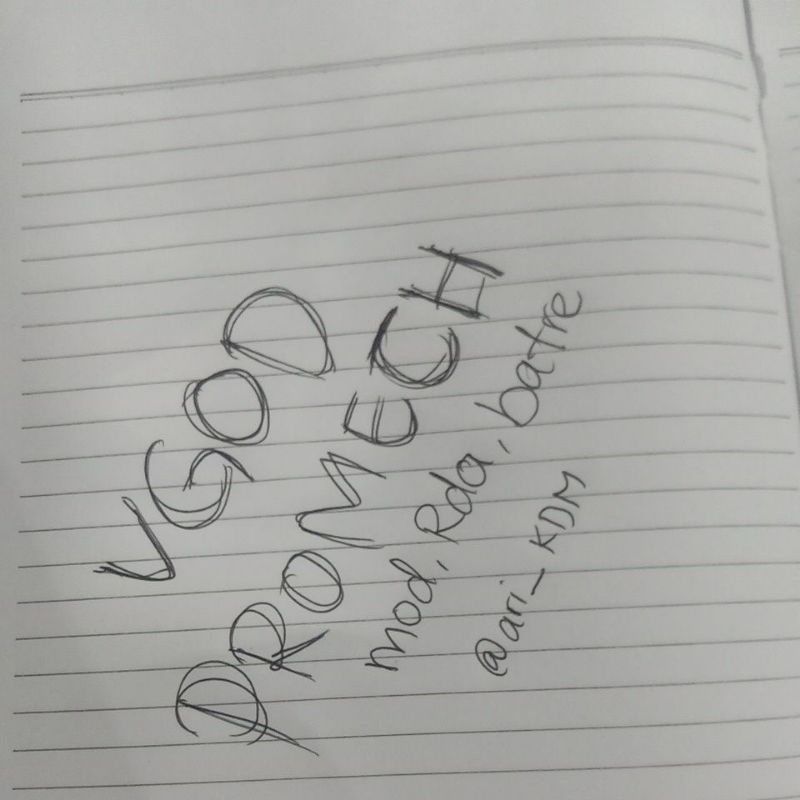 VGOD
PROMECH
Mod, Rda, batre
@ari_KDM